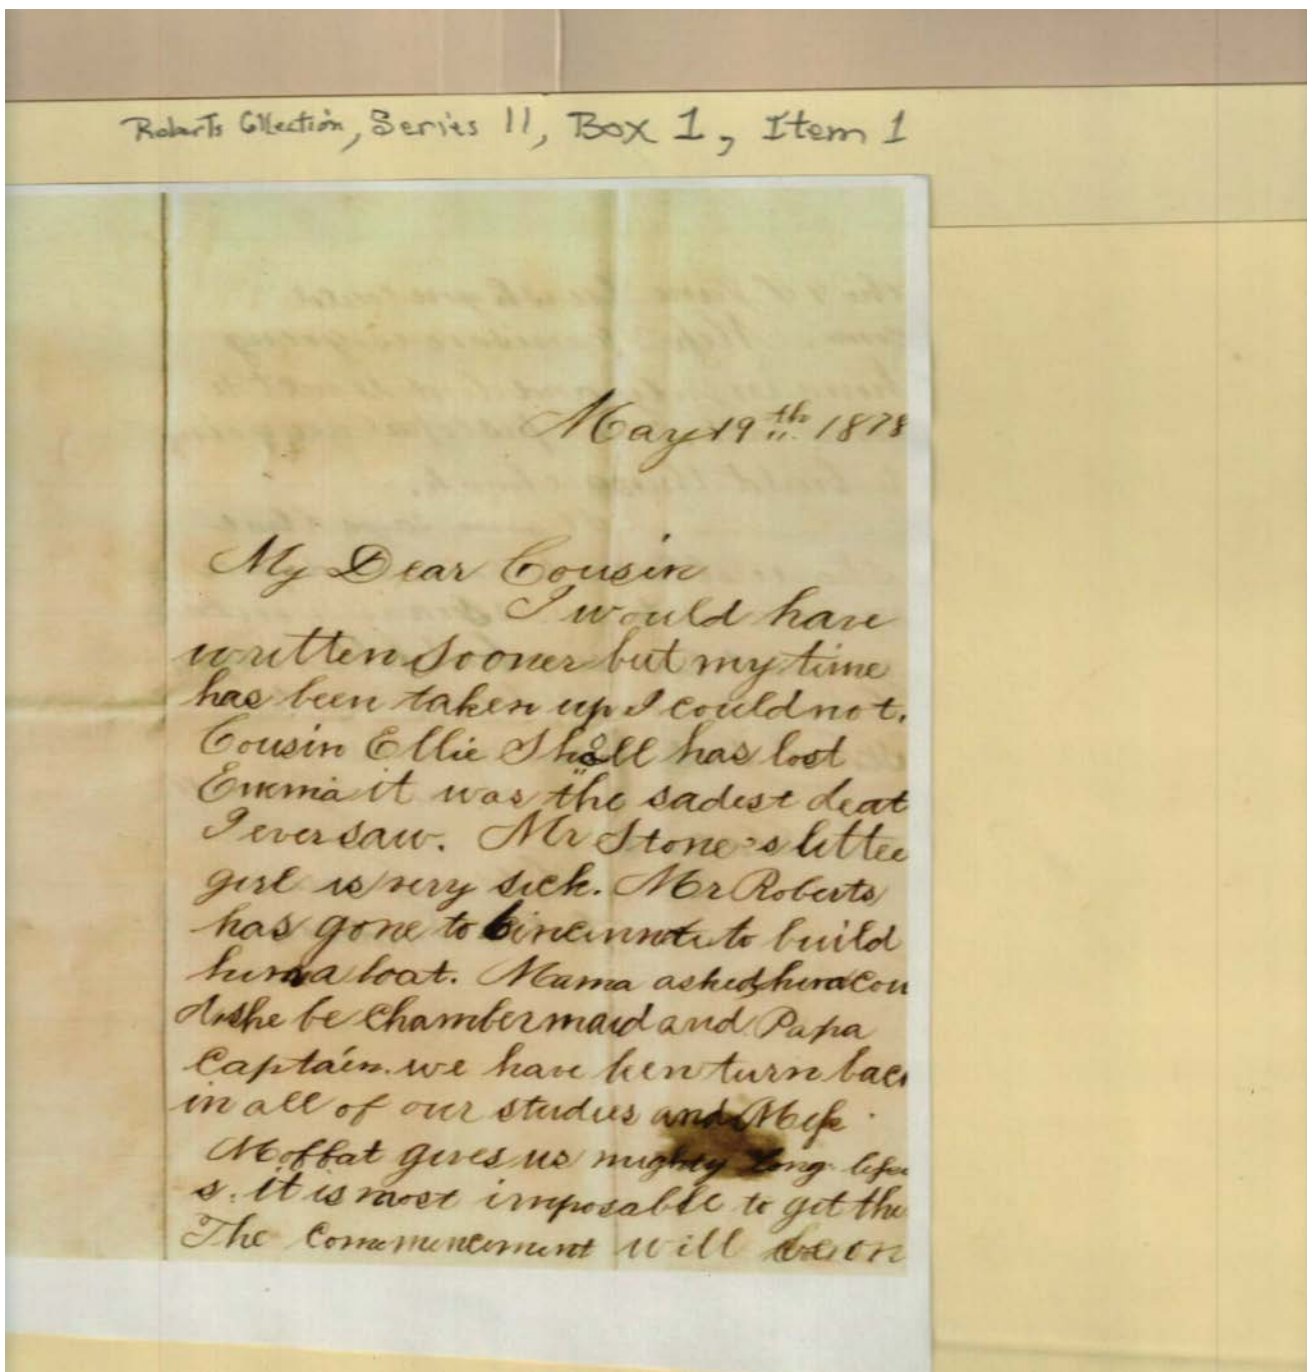 Roberts Collection, Series II, Box 1, Item 1
May 19th 1878
My Dear Cousin
I would have
written sooner but my time
has been taken up I could not.
Cousin Ellie Shall has lost
Emma it was the sadest deat
I ever saw. Mr Stone's little
girl is very sick. Mr Roberts
has gone to to build
him a boat. Mama asked him cou
d she be Chambermaid and Papa
Captain. we have ben turn back
in all of our studies and Miss
Moffat gives us mighty long lesson
s. it is most imposable to get the
The Commencement will be on